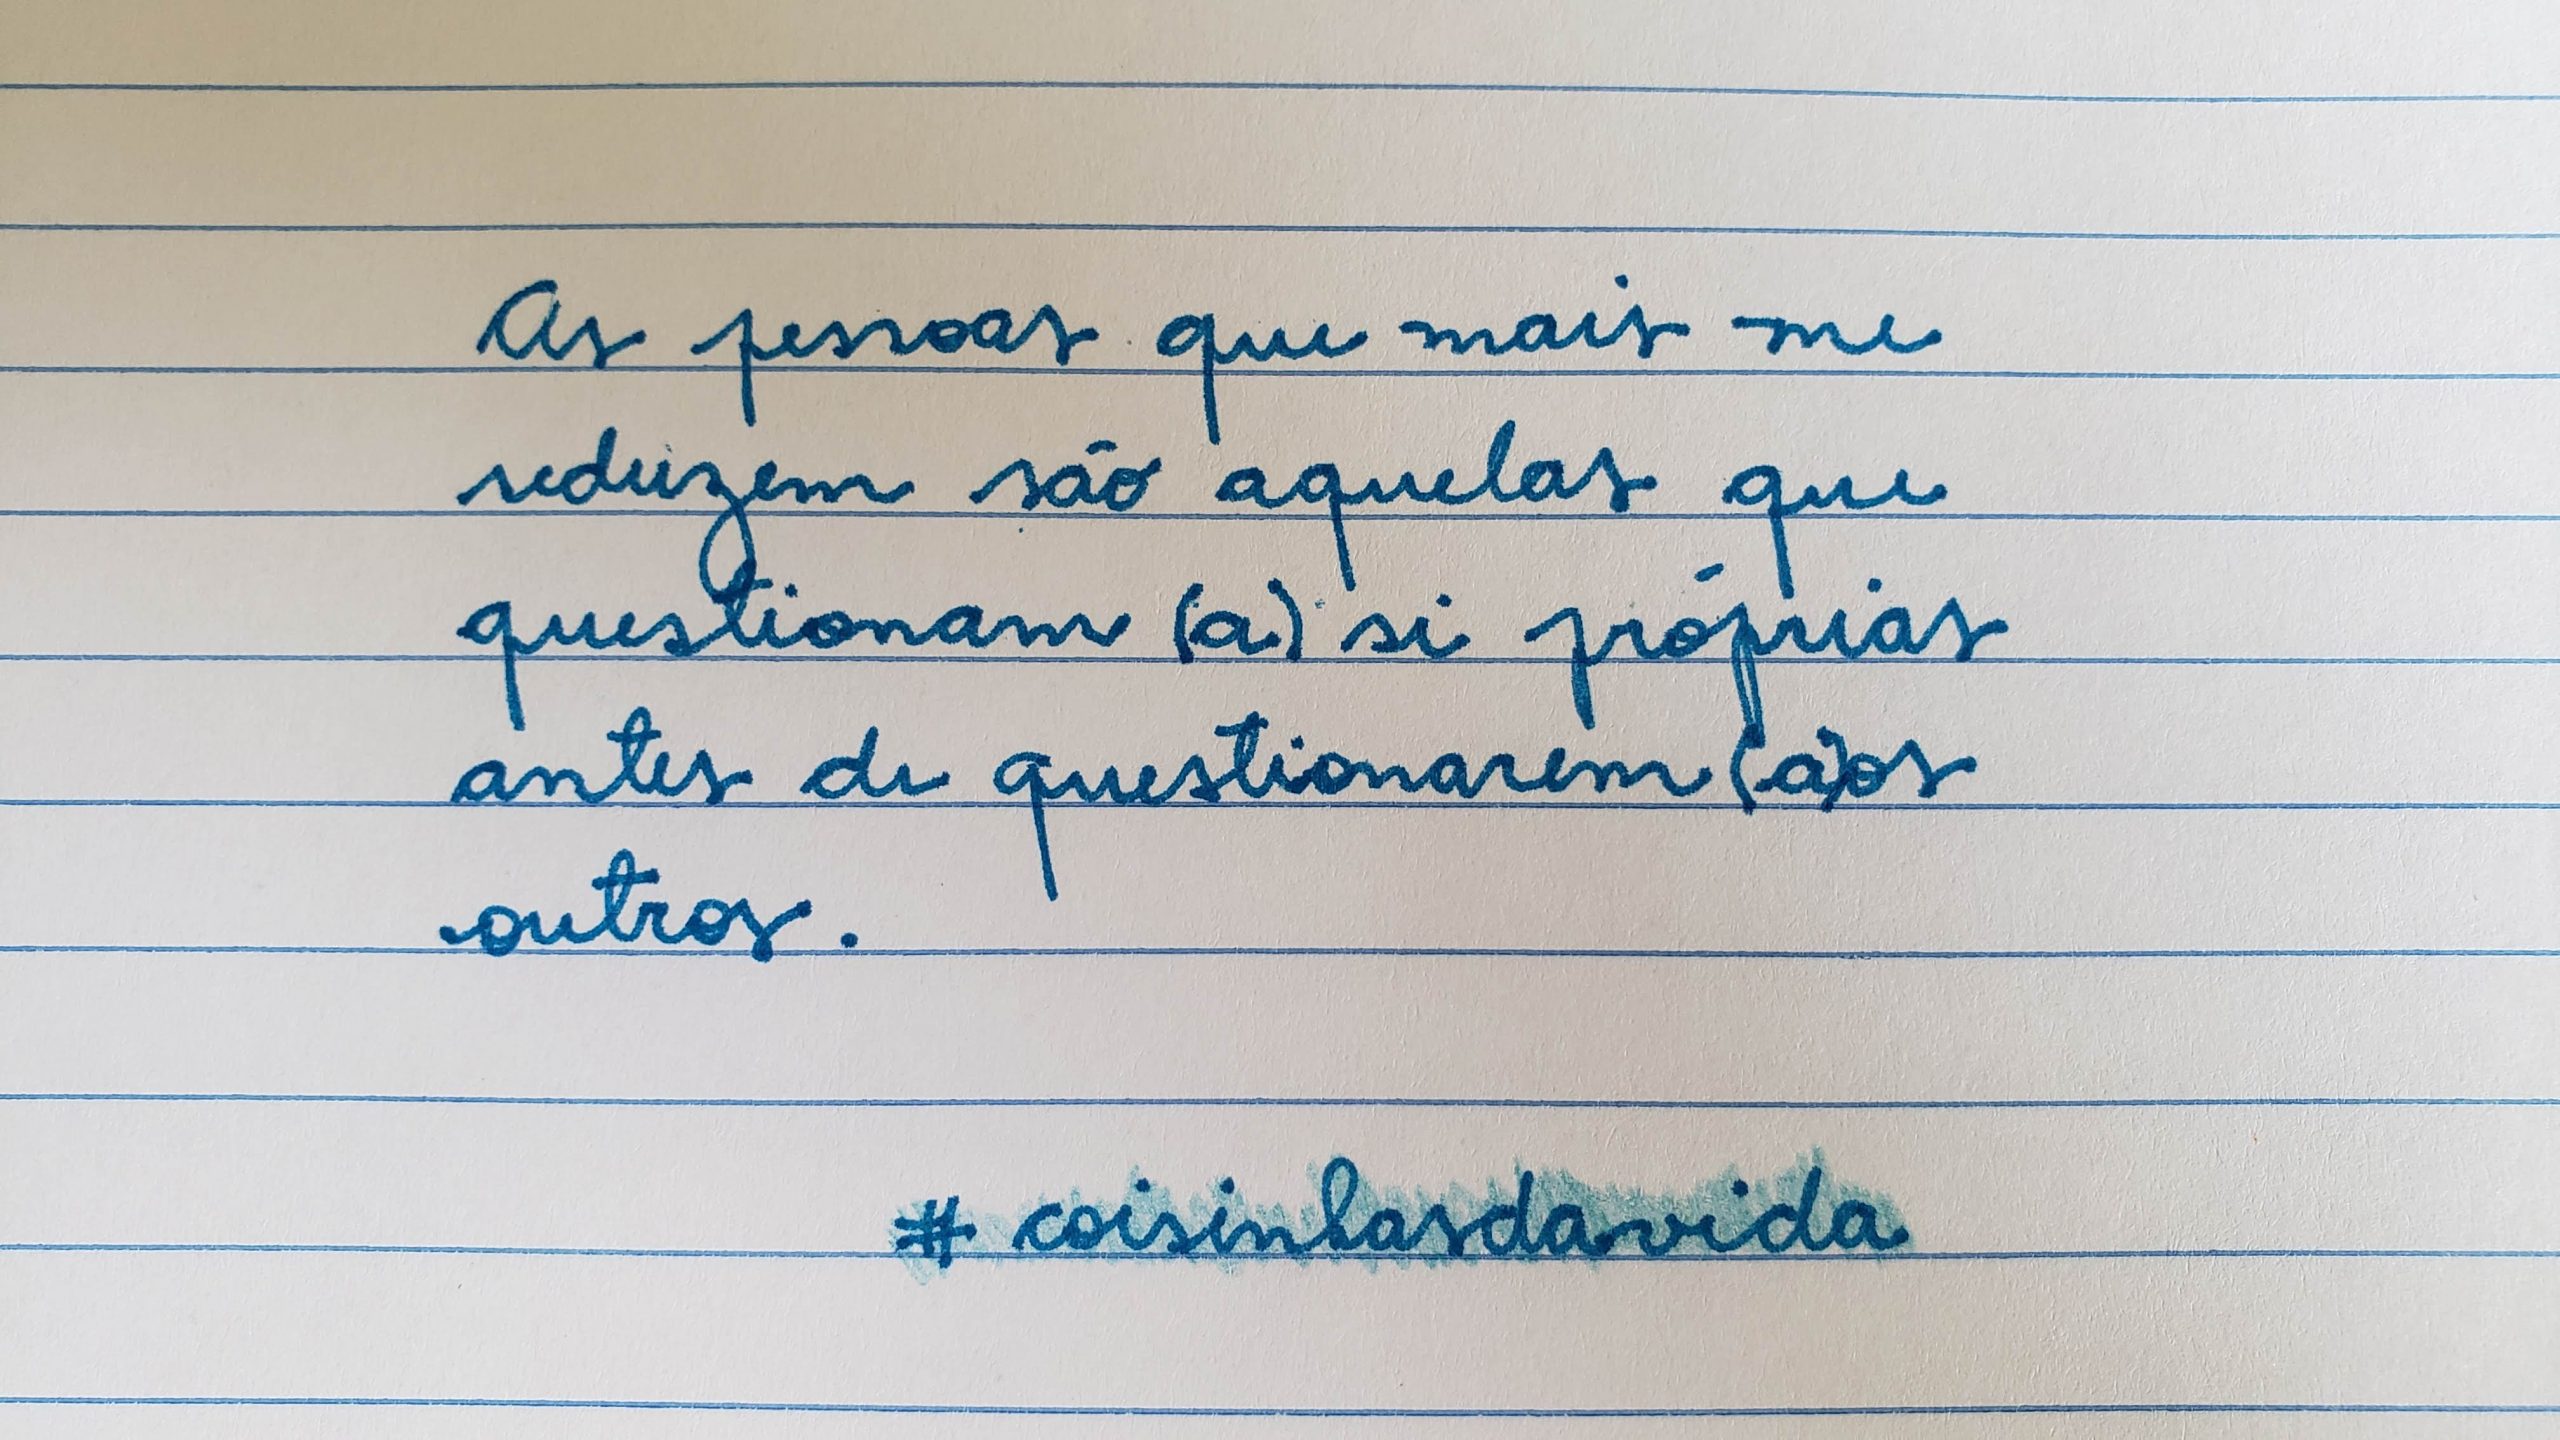 As pessoas que mais me
reduzem são aquelas que
questionam (a) si próprias
antes de questionarem (a)os
outros.
# coisinhasdavida